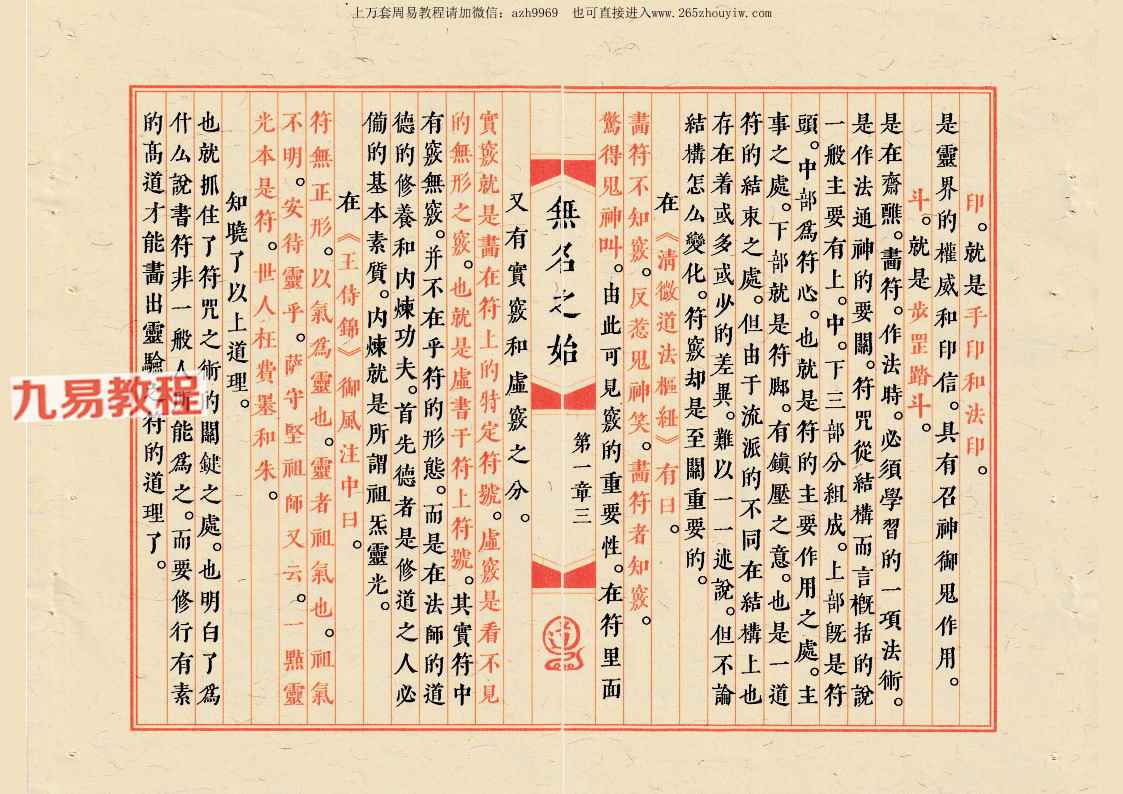 上万套周易教程请加微信：azh9969　也可直接进入www.265zhouyiw.com
印。就是手印和法印。
是靈界的權威和印信。具有召神御鬼作用。
斗。就是步罡踏斗。
是在齋醮。畫符。作法時。必須學習的一項法術。
是作法通神的要關。符咒從結構而言概括的說
一般主要有上。中。下三部分組成。上部既是符
頭。中部爲符心。也就是符的主要作用之處。主
事之處。下部就是符脚。有鎮壓之意。也是一道
符的結束之處。但由于流派的不同在結構上也
存在着或多或少的差異。難以一一述說。但不論
結構怎么變化。符竅却是至關重要的。
在《清微道法樞紐》有曰。
畵符不知竅。反惹鬼神笑。畵符者知竅。
驚得鬼神叫。由此可見竅的重要性。在符里面
無名之始
第一章三
又有實竅和虛竅之分。
實竅就是畵在符上的特定符號。虛竅是看不見
的無形之竅。也就是虛書于符上符號。其實符中
有竅無竅。并不在乎符的形態。而是在法師的道
德的修養和内煉功夫。首先德者是修道之人必
備的基本素質。内煉就是所謂祖炁靈光。
在《王侍錦》御風注中曰。
符無正形。以氣爲靈也。靈者祖氣也。祖氣
不明。安待靈乎。薩守堅祖師又云。一點靈
光本是符。世人枉費墨和朱。
知曉了以上道理。
也就抓住了符咒之術的關鍵之處。也明白了爲
什么說書符非一般人所能爲之。而要修行有素
的高道才能畵出靈驗之符的道理了。
九易教程